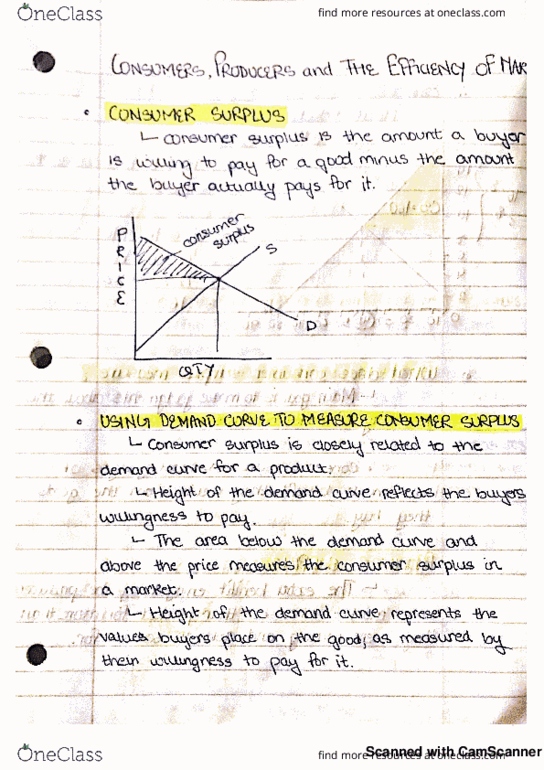 OneClass
find more resources at oneclass.com
CONSUMERS, PRODUCERS and THE EFFICIENCY OF MAR
• CONSUMER SURPLUS
↳ consumer surplus is the amount a buyer
is willing to pay for a good minus the amount
the buyer actually pays for it.
PRICE
consumer
surplus
S
D
QTY
• USING DEMAND CURVE TO MEASURE CONSUMER SURPLUS
↳ Consumer surplus is closely related to the
demand curve for a product.
↳ Height of the demand curve reflects the buyers
willingness to pay.
↳ The area below the demand curve and
above the price measures the consumer surplus in
a market.
↳ Height of the demand curve represents the
values buyers place on the good, as measured by
their willingness to pay for it.
OneClass
find more resources at oneclass.com
Scanned with CamScanner